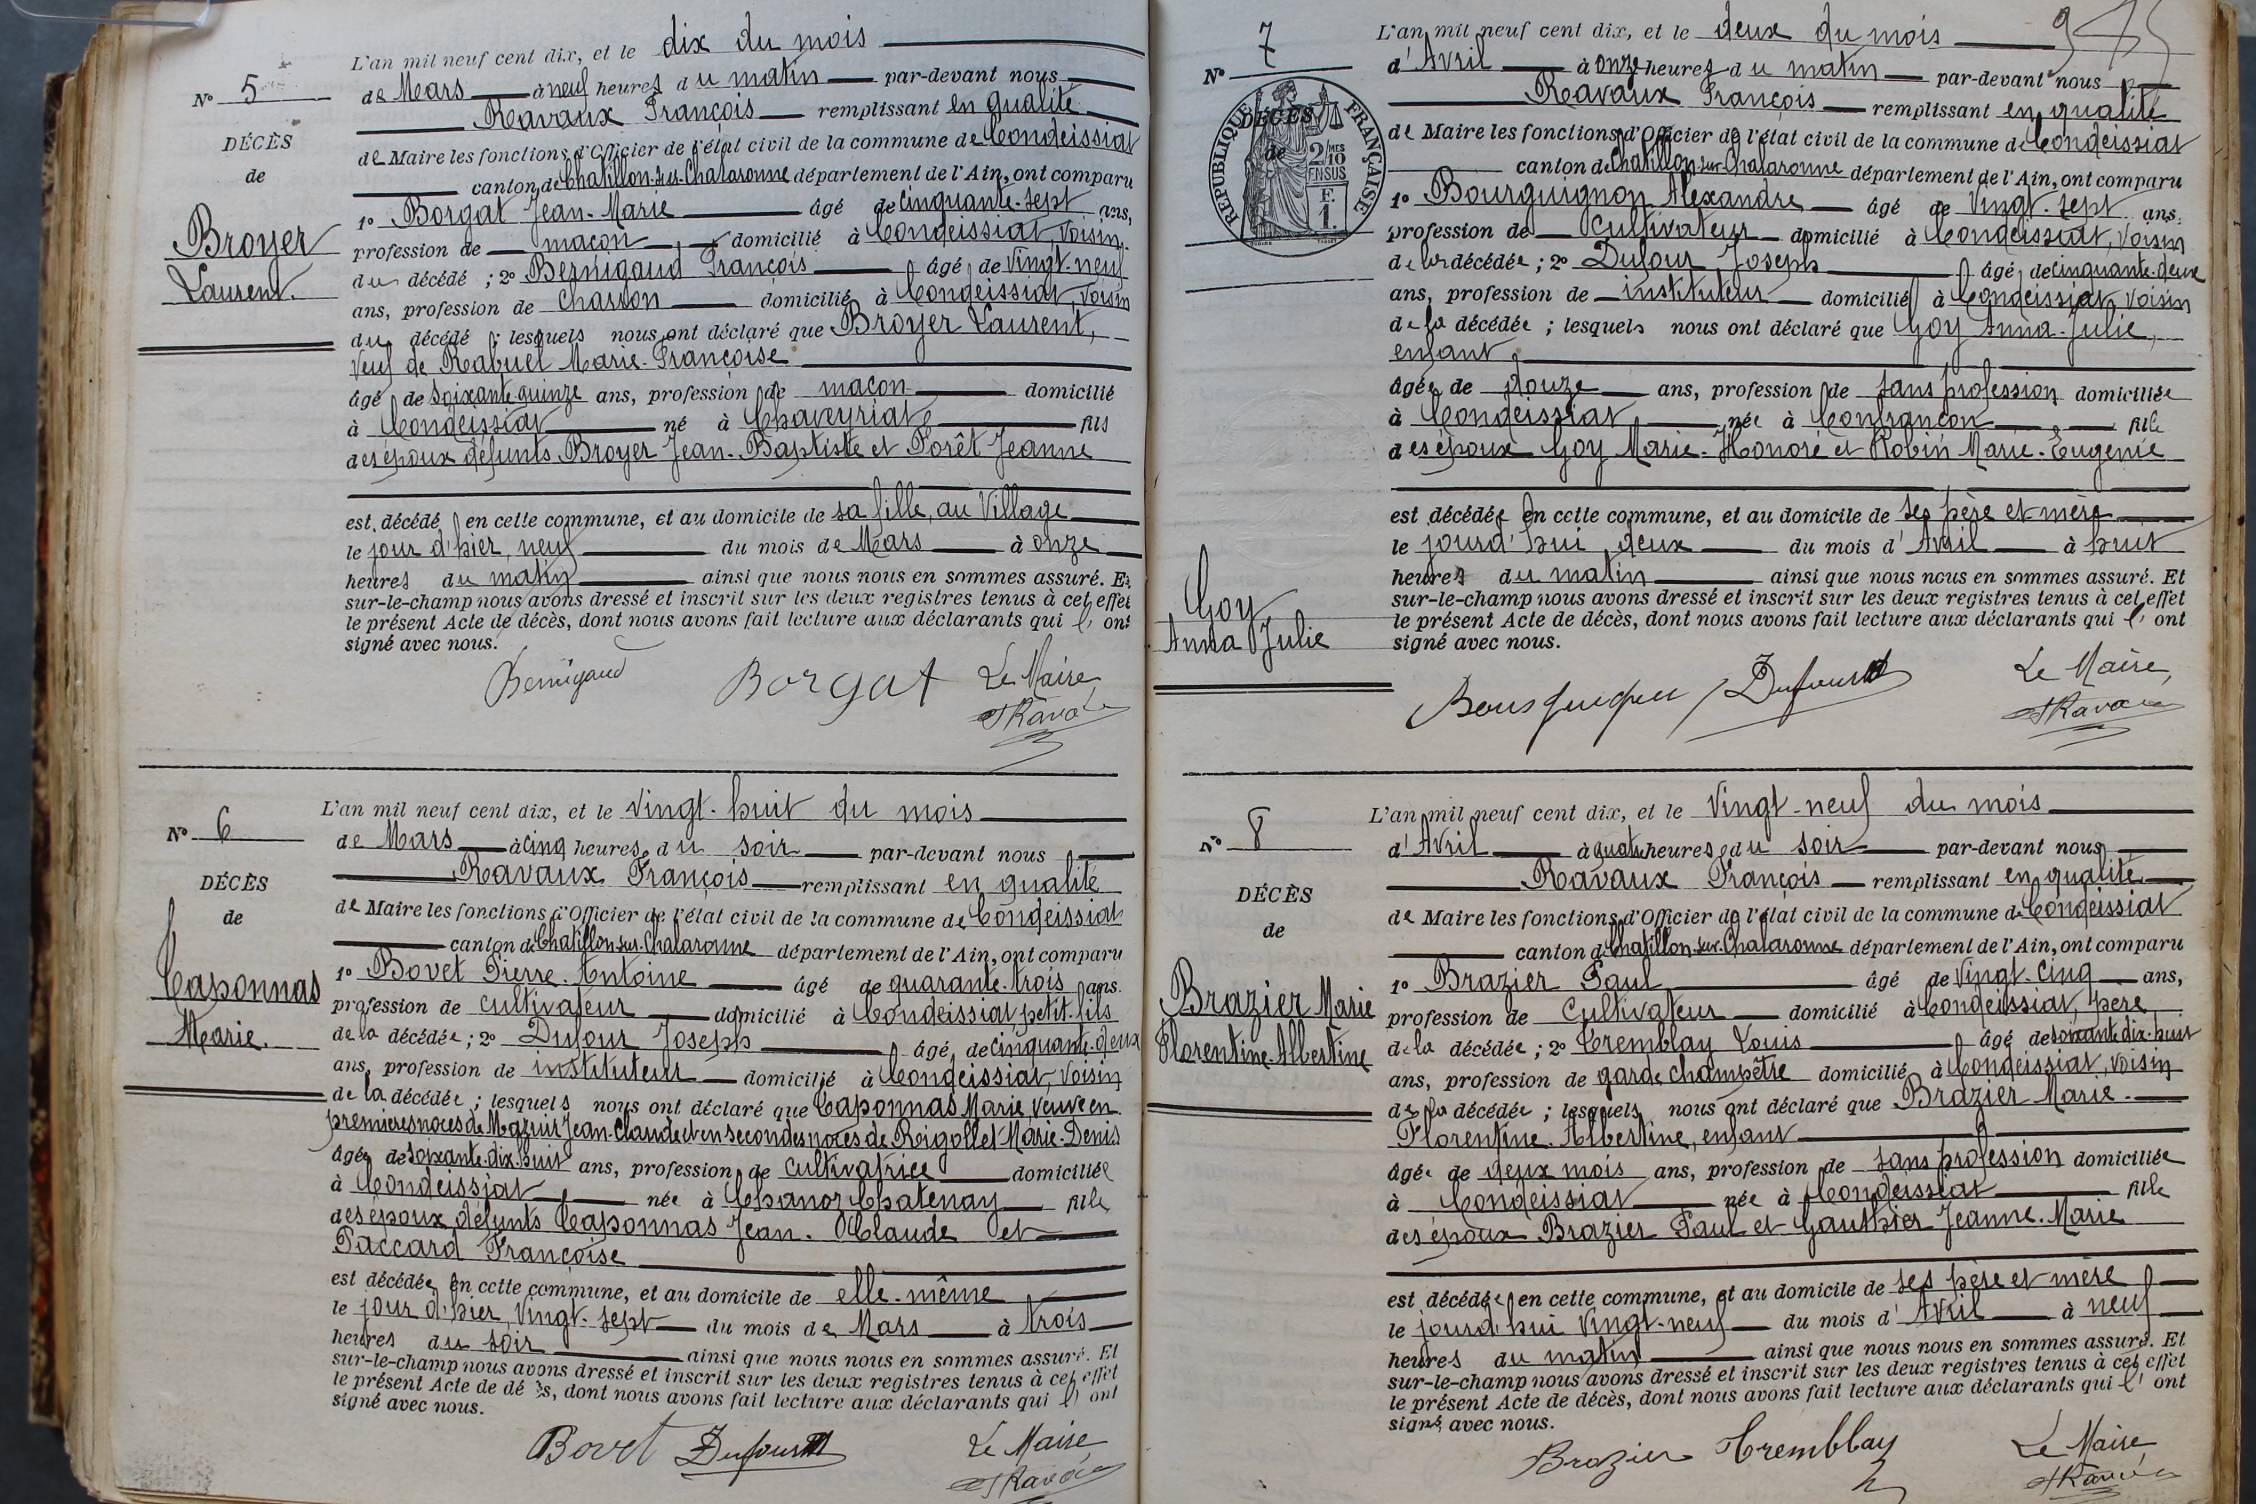 L'an mil neuf cent dix, et le dix du mois
N° 5
de Mars à neuf heures du matin par-devant nous
Ravaux François remplissant en qualité
DÉCÈS
de Maire les fonctions d'Officier de l'état civil de la commune de Condeissiat
de
canton de Châtillon-sur-Chalaronne département de l'Ain, ont comparu
1° Borgat Jean-Marie âgé de cinquante-sept ans,
Broyer
profession de maçon domicilié à Condeissiat, voisin
du décédé ; 2° Bernigaud François âgé de vingt-neuf
Laurent.
ans, profession de charron domicilié à Condeissiat, voisin
du décédé ; lesquels nous ont déclaré que Broyer Laurent,
veuf de Rabuel Marie-Françoise
âgé de soixante-quinze ans, profession de maçon domicilié
à Condeissiat né à Chaveyriat fils
des époux défunts Broyer Jean-Baptiste et Forêt Jeanne
est décédé en cette commune, et au domicile de sa fille, au Village
le jour d'hier, neuf du mois de Mars à onze
heures du matin ainsi que nous nous en sommes assuré. Et
sur-le-champ nous avons dressé et inscrit sur les deux registres tenus à cet effet
le présent Acte de décès, dont nous avons fait lecture aux déclarants qui l' ont
signé avec nous.
Bernigaud Borgat Le Maire,
FRavaux
L'an mil neuf cent dix, et le vingt-huit du mois
N° 6
de Mars à cinq heures du soir par-devant nous
Ravaux François remplissant en qualité
DÉCÈS
de Maire les fonctions d'Officier de l'état civil de la commune de Condeissiat
de
canton de Châtillon-sur-Chalaronne département de l'Ain, ont comparu
1° Bovet Pierre-Antoine âgé de quarante-trois ans.
Caponnas
profession de cultivateur domicilié à Condeissiat petit-fils
Marie.
de la décédée ; 2° Dufour Joseph âgé de cinquante-deux
ans, profession de instituteur domicilié à Condeissiat, voisin
de la décédée ; lesquels nous ont déclaré que Caponnas Marie, veuve en
premières noces de Mazuir Jean-Claude et en secondes noces de Reigollet Marie-Denis
âgée de soixante-dix-huit ans, profession de cultivatrice domiciliée
à Condeissiat née à Chanoz-Chatenay fille
des époux défunts Caponnas Jean-Claude et
Paccard Françoise
est décédée en cette commune, et au domicile de elle-même
le jour d'hier, vingt-sept du mois de Mars à trois
heures du soir ainsi que nous nous en sommes assuré. Et
sur-le-champ nous avons dressé et inscrit sur les deux registres tenus à cet effet
le présent Acte de décès, dont nous avons fait lecture aux déclarants qui l' ont
signé avec nous.
Bovet Dufour Le Maire
FRavaux
L'an mil neuf cent dix, et le deux du mois
N° 7
d'Avril à onze heures du matin par-devant nous
Ravaux François remplissant en qualité
RÉPUBLIQUE FRANÇAISE
2/10 MES EN SUS
F. 1.
DÉCÈS
de
de Maire les fonctions d'Officier de l'état civil de la commune de Condeissiat
canton de Châtillon-sur-Chalaronne département de l'Ain, ont comparu
1° Bourguignon Alexandre âgé de vingt-sept ans.
profession de Cultivateur domicilié à Condeissiat, voisin
de la décédée ; 2° Dufour Joseph âgé de cinquante-deux
ans, profession de instituteur domicilié à Condeissiat, voisin
de la décédée ; lesquels nous ont déclaré que Goy Anna-Julie,
enfant,
âgée de douze ans, profession de sans profession domiciliée
à Condeissiat née à Confrançon fille
des époux Goy Marie-Honoré et Robin Marie-Eugénie
est décédée en cette commune, et au domicile de ses père et mère
le jourd'hui deux du mois d'Avril à huit
heures du matin ainsi que nous nous en sommes assuré. Et
sur-le-champ nous avons dressé et inscrit sur les deux registres tenus à cet effet
Goy
le présent Acte de décès, dont nous avons fait lecture aux déclarants qui l' ont
Anna Julie
signé avec nous.
Dufour Le Maire,
FRavaux
L'an mil neuf cent dix, et le vingt-neuf du mois
N° 8
d'Avril à quatre heures du soir par-devant nous
Ravaux François remplissant en qualité
DÉCÈS
de Maire les fonctions d'Officier de l'état civil de la commune de Condeissiat
de
canton de Châtillon-sur-Chalaronne département de l'Ain, ont comparu
1° Brazier Paul âgé de vingt-cinq ans,
Brazier Marie
profession de Cultivateur domicilié à Condeissiat, père
Florentine-Albertine
de la décédée ; 2° Tremblay Louis âgé de soixante-dix-huit
ans, profession de garde champêtre domicilié à Condeissiat, voisin
de la décédée ; lesquels nous ont déclaré que Brazier Marie-
Florentine-Albertine, enfant
âgée de deux mois ans, profession de sans profession domiciliée
à Condeissiat née à Condeissiat fille
des époux Brazier Paul et Gauthier Jeanne-Marie
est décédée en cette commune, et au domicile de ses père et mère
le jourd'hui vingt-neuf du mois d'Avril à neuf
heures du matin ainsi que nous nous en sommes assuré. Et
sur-le-champ nous avons dressé et inscrit sur les deux registres tenus à cet effet
le présent Acte de décès, dont nous avons fait lecture aux déclarants qui l' ont
signé avec nous.
Brazier Tremblay Le Maire
FRavaux